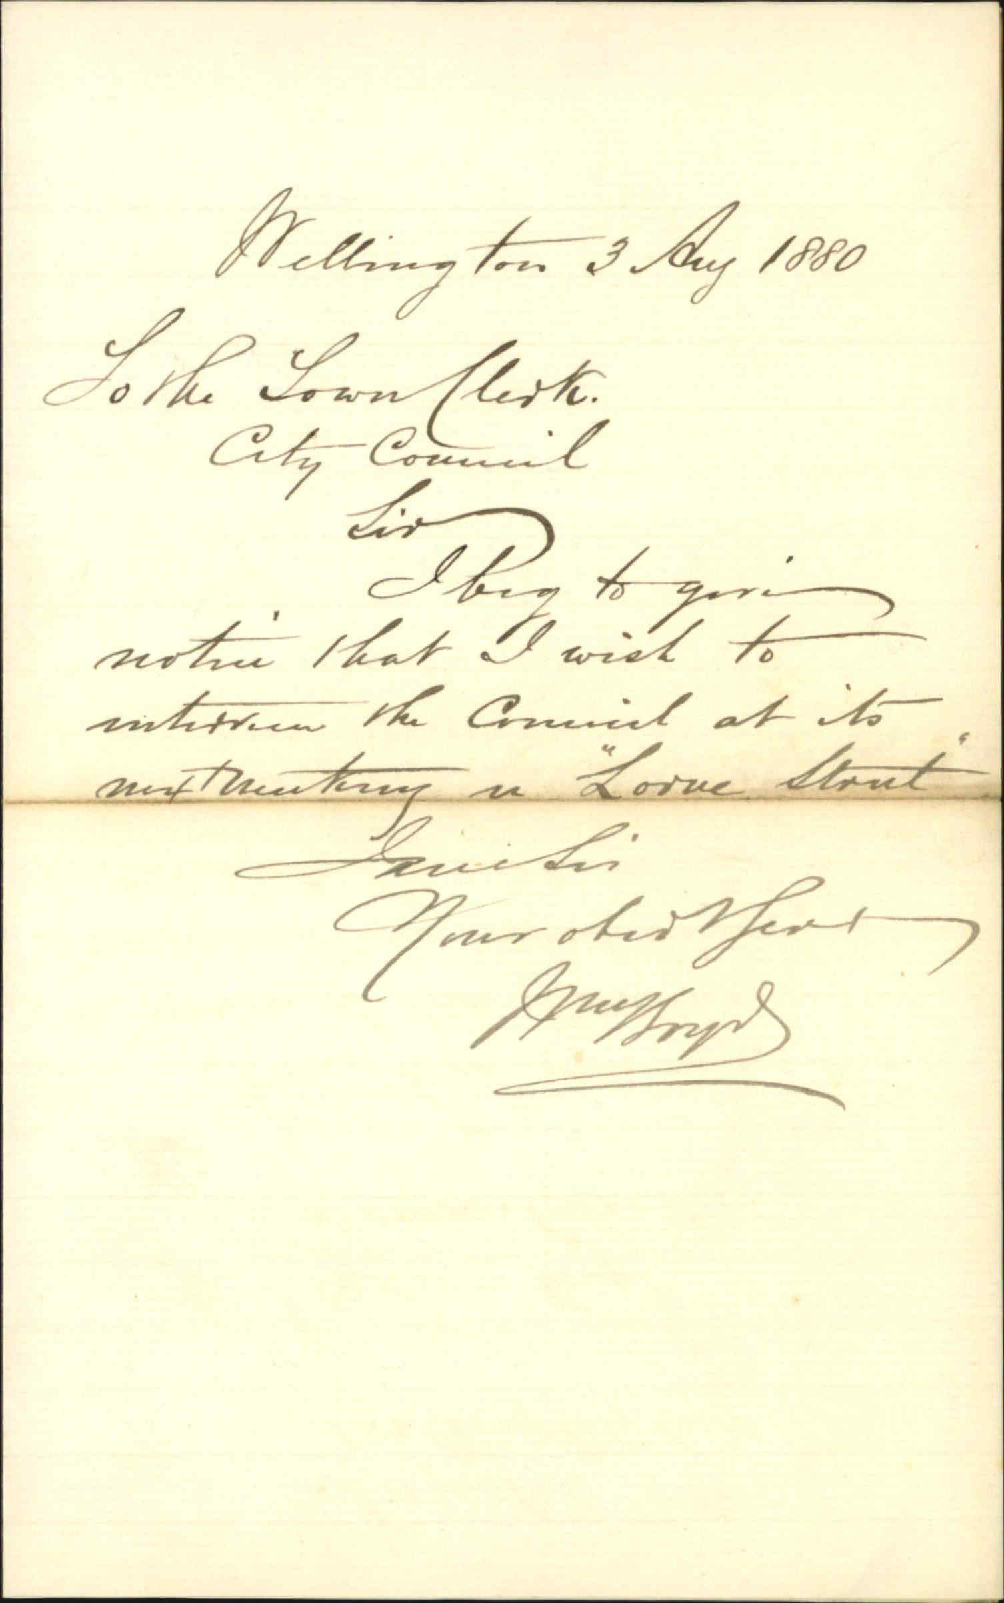 Wellington 3 Aug 1880
To the Town Clerk.
City Council
Sir
I beg to give
notice that I wish to
interview the Council at its
next meeting re "Lorne Street"
I am Sir
Your obedt Servt
Wm Boyd